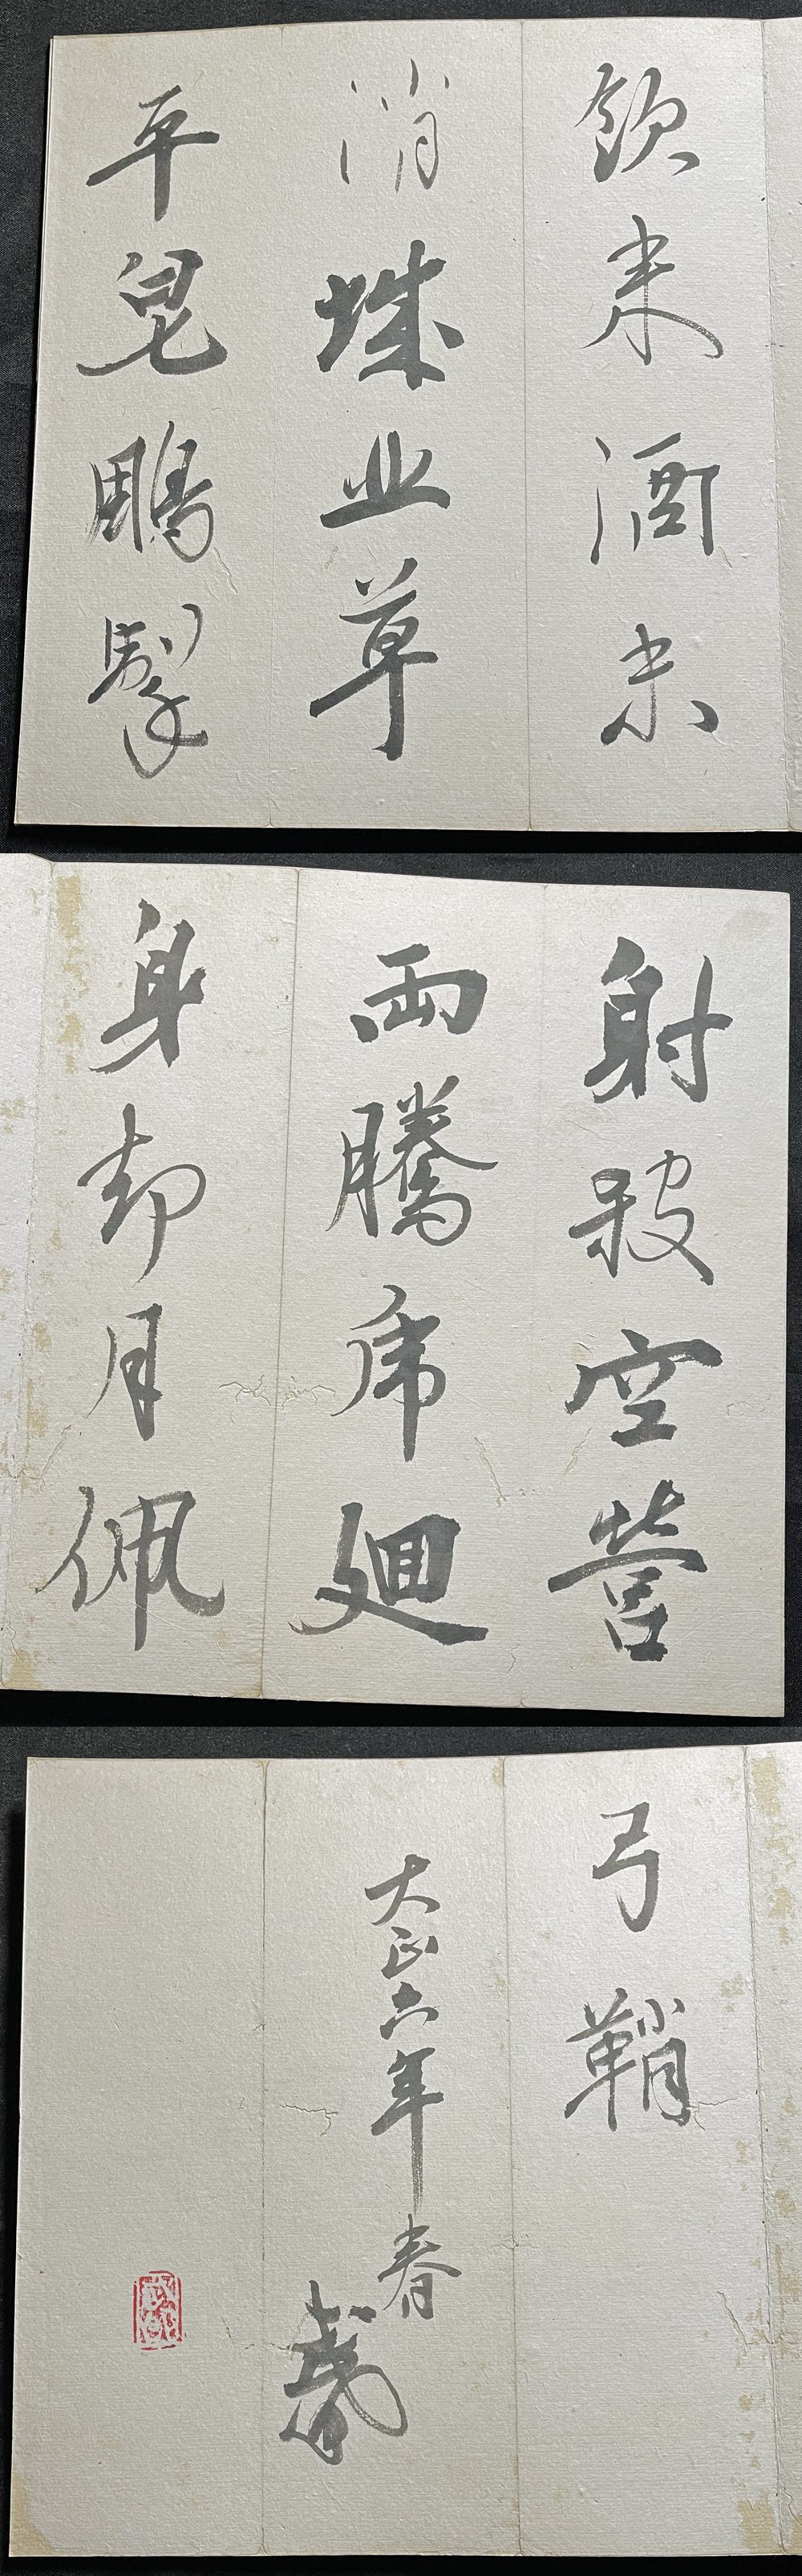 飲来酒未
消城北草
平皂鵰掣
射殺空營
兩騰虎廻
身却月佩
弓鞘
大正六年春